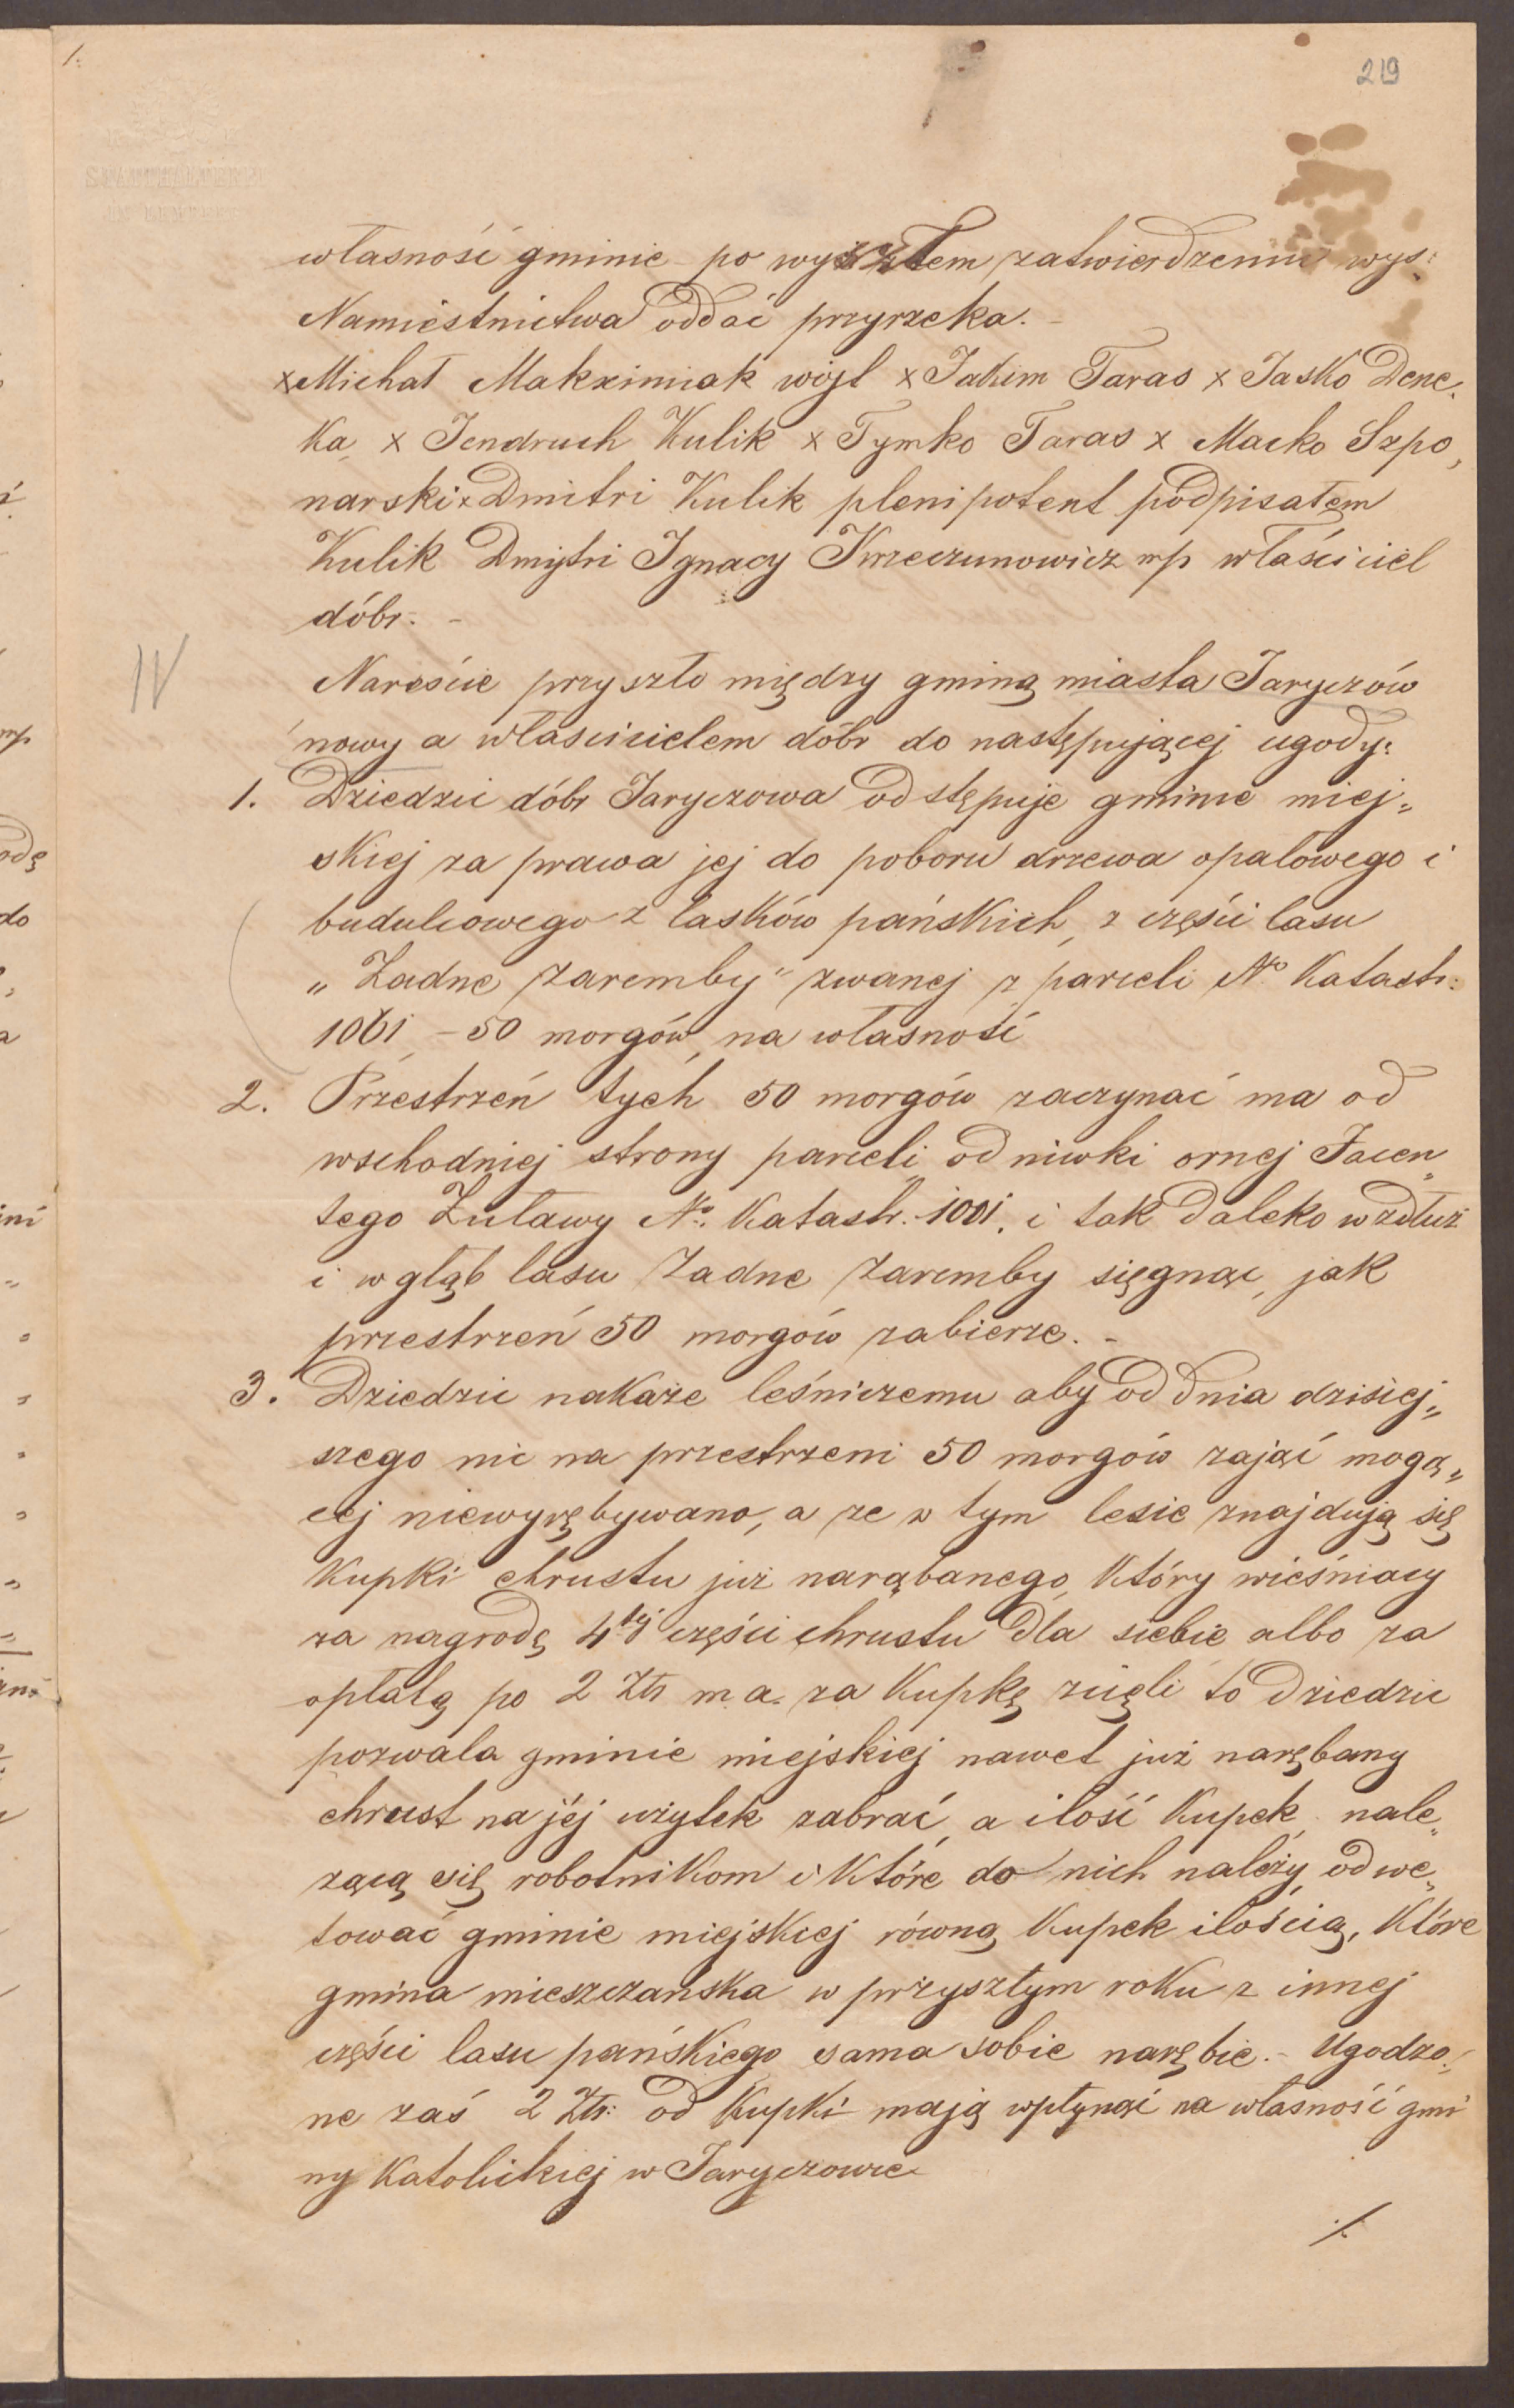 1.
219
STATTHALTEREI
IN LEMBERG
własność gminie po wyszłem zatwierdzeniu wys:
Namiestnictwa oddać przyrzeka. -
x Michał Makximiak wójt x Jakim Taras x Jasko Dene„
ka x Jendruch Kulik x Tymko Taras x Maćko Szpo„
narski x Dmitri Kulik plenipotent podpisałem
Kulik Dmytri Ignacy Krzeczunowicz mp właściciel
dóbr. -
IV
Nareście przyszło między gminą miasta Jaryczów
nowy a właścicielem dóbr do następującej ugody:
1. Dziedzic dóbr Jaryczowa odstępuje gminie miej„
skiej za prawa jej do poboru drzewa opałowego i
budulcowego z lasków pańskich, z części lasu
„Zadne zaremby" zwanej z parceli No Katastr:
1061 - 50 morgów, na własność
2. Przestrzeń tych 50 morgów zaczynać ma od
wschodniej strony parceli od niwki ornej Jacen„
tego Żuławy No. Katastr. 1001. i tak daleko wzdłuż
i w głąb lasu Zadne Zaremby sięgnąc, jak
przestrzeń 50 morgów zabierze. -
3. Dziedzic nakaże leśniczemu aby od dnia dzisiej„
szego nic na przestrzeni 50 morgów zająć mogą„
cej niewyrębywano, a ze w tym lesie znajdują się
Kupki chrustu już narąbanego, Który wieśniacy
za nagrodę 4tej części chrustu dla siebie albo za
opłatą po 2 Ztr m. a. za Kupkę zcięli to dziedzic
pozwala gminie miejskiej nawet już narębany
chrust na jéj użytek zabrać, a ilość Kupek nale„
zącą się robotnikom i Które do nich należy, odwe„
tować gminie miejskiej równą Kupek ilością, Które
gmina mieszczańska w przyszłym roku z innej
części lasu pańskiego sama sobie narębie. - Ugodzo„
ne zaś 2 Ztr: od Kupki mają wpłynąć na własność gmi
ny Katolickiej w Jaryczowie
./.